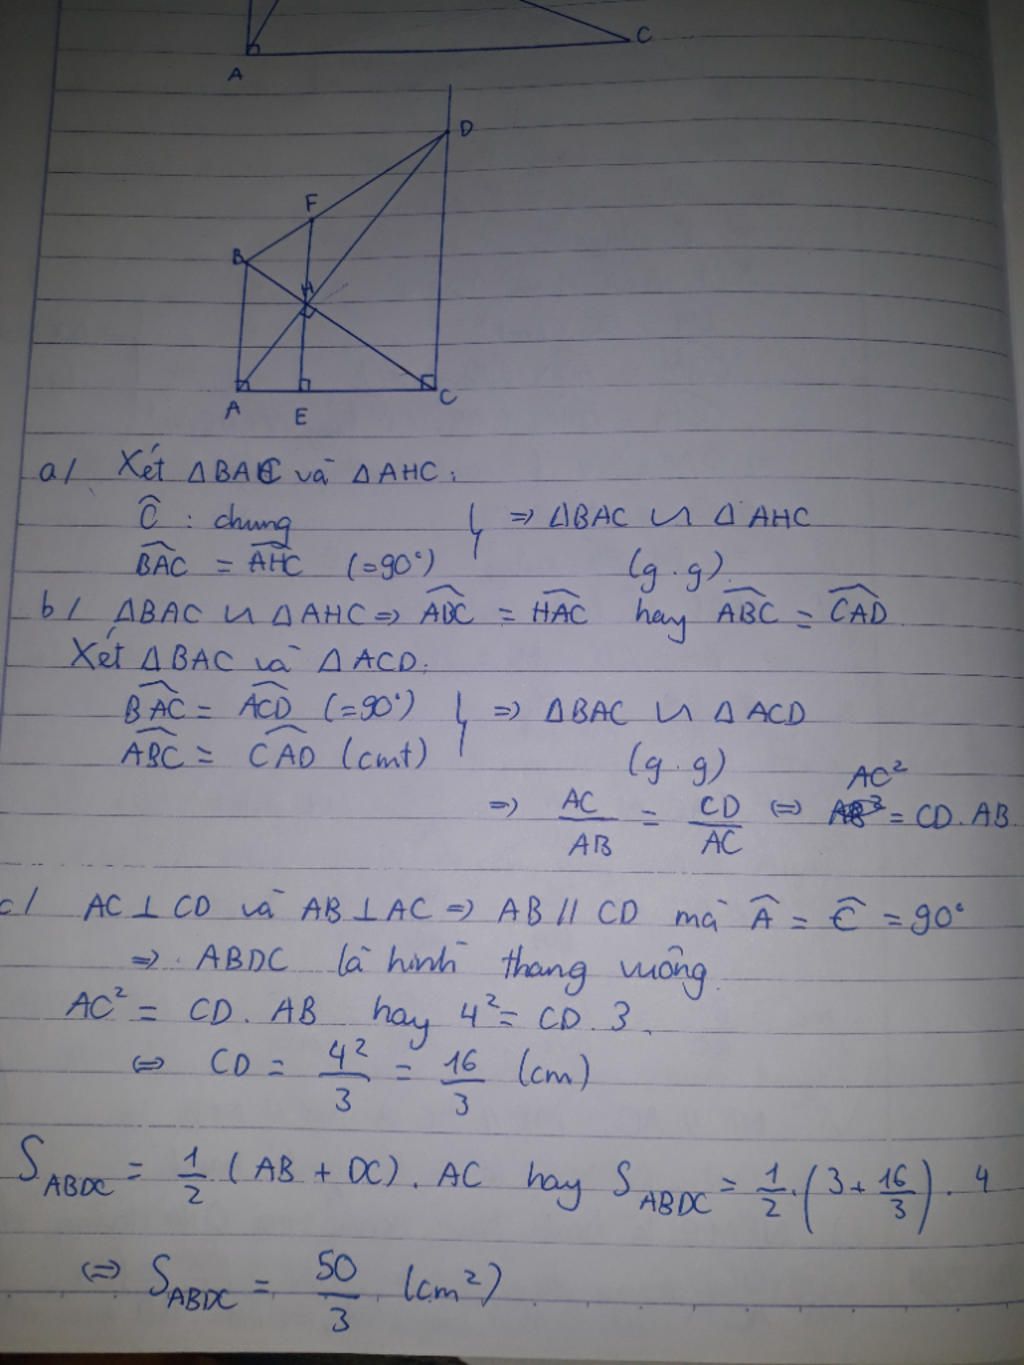 A
C
D
F
B
H
A
E
C
a/ Xét ΔBAC và ΔAHC:
Ĉ : chung
⇒ ΔBAC ∽ ΔAHC
BAC = AHC (=90°)
(g.g)
b/ ΔBAC ∽ ΔAHC ⇒ ABC = HAC hay ABC = CAD
Xét ΔBAC và ΔACD:
BAC = ACD (=90°)
⇒ ΔBAC ∽ ΔACD
ABC = CAD (cmt)
(g.g)
⇒ AC/AB = CD/AC ⇔ AC² = CD.AB
c/ AC ⊥ CD và AB ⊥ AC ⇒ AB // CD mà Â = Ĉ = 90°
⇒ ABDC là hình thang vuông
AC² = CD. AB hay 4² = CD.3
⇔ CD = 4²/3 = 16/3 (cm)
S_ABDC = 1/2 (AB + DC). AC hay S_ABDC = 1/2.(3 + 16/3). 4
⇔ S_ABDC = 50/3 (cm²)